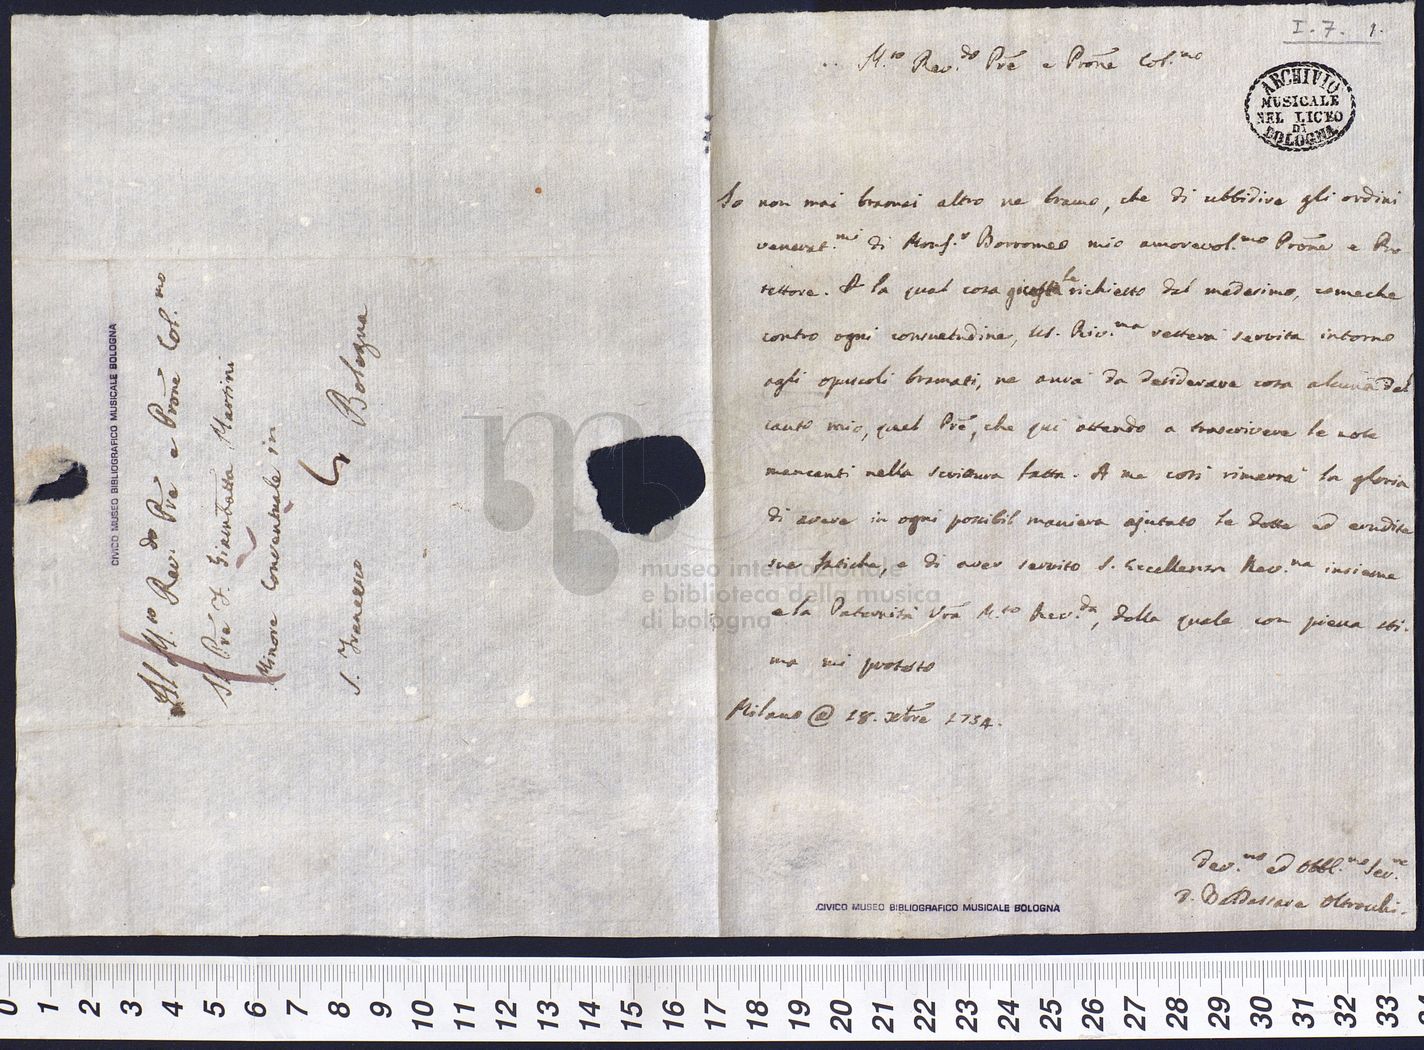 I. 7. 1.
M.to Rev.do Prē e Prōne Col.mo
ARCHIVIO
MUSICALE
NEL LICEO
DI
BOLOGNA
Io non mai bramai altro ne bramo, che di ubbidire gli ordini
venerat.mi di Monsʳ Borromeo mio amorevol.mo Prōne e Pro
tettore. A la qual cosa richiesto dal medesimo, comeche
contro ogni consuetudine, Riv.ma resterà servita intorno
agli opuscoli bramati, ne avrà da desiderare cosa alcuna dal
canto mio, quel Prē, che qui attendo a trascrivere le note
mancanti nella scrittura fatta. A me così rimerrà la gloria
di avere in ogni possibil maniera ajutato le dotte ed erudite
sue fatiche, e di aver servito S. Eccellenza Rev.ma insieme
e la Paternità Vrā M.to Rev.da, della quale con piena sti-
ma mi protesto
Milano @ 18. Xbre 1754.
Dev.mo ed Obbl.mo Ser.re
D. Baldassare Oltrocchi.
CIVICO MUSEO BIBLIOGRAFICO MUSICALE BOLOGNA
Al M.to Rev.do Prē e Prōne Col.mo
Il Prē F. Giambatta Martini
Minore Conventuale in
S. Francesco Bologna
CIVICO MUSEO BIBLIOGRAFICO MUSICALE BOLOGNA
museo internazionale
e biblioteca della musica
di bologna
0 1 2 3 4 5 6 7 8 9 10 11 12 13 14 15 16 17 18 19 20 21 22 23 24 25 26 27 28 29 30 31 32 33